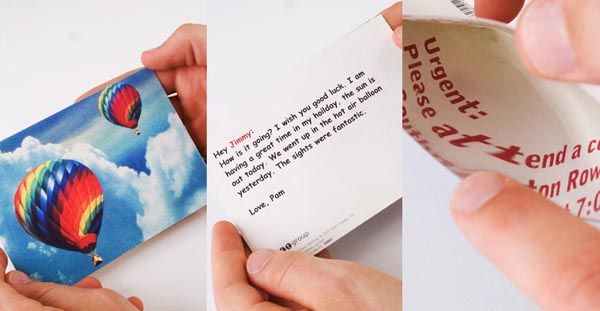 Hey Jimmy;
How is it going? I wish you good luck. I am
having a great time in my holiday, the sun is
out today. We went up in the hot air balloon
yesterday. The sights were fantastic.
Love, Pam
group
Urgent:
Please attend a
ton Row
7:0